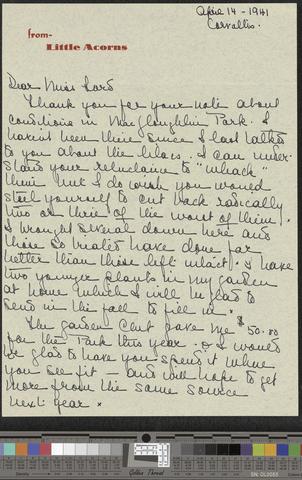 April 14 - 1941
Corvallis.
from-
Little Acorns
Dear Miss Lord
Thank you for your note about
conditions in McLoughlin Park. I
haven't been there since I last talked
to you about the lilacs. I can under-
stand your reluctance to "whack"
them but I do wish you would
steel yourself to cut back radically
two or three of the worst of them.
I brought several down here and
those so treated have done far
better than those left intact. I have
two younger plants in my garden
at home which I will be glad to
send in the fall to fill in.
The garden club gave me $50.00
for the Park this year. I would
be glad to have you spend it where
you see fit - and will hope to get
more from the same source
next year.
Golden Thread